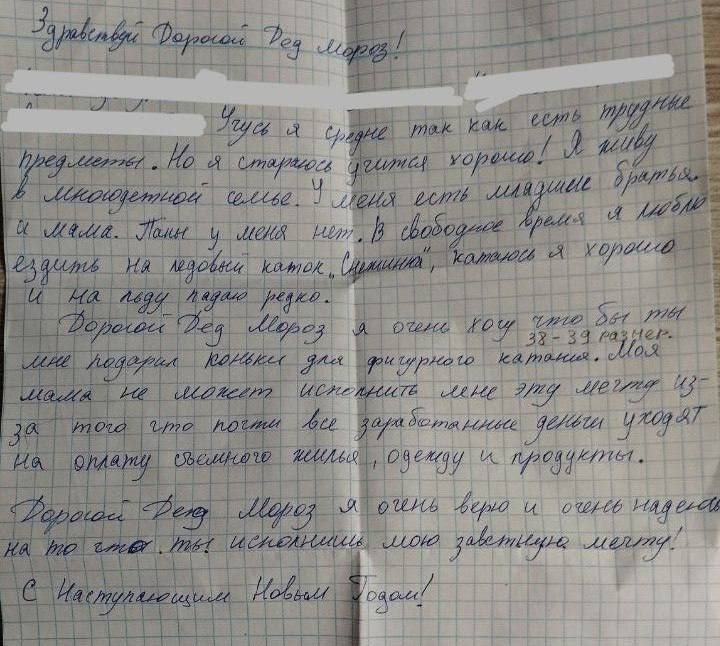 Здравствуй Дорогой Дед Мороз!
Учусь я средне так как есть трудные
предметы. Но я стараюсь учится хорошо! Я живу
в многодетной семье. У меня есть младшие братья.
и мама. Папы у меня нет. В свободное время я люблю
ездить на ледовый каток „Снежинка", катаюсь я хорошо
и на льду падаю редко.
Дорогой Дед Мороз я очень хочу что бы ты
38-39 размер.
мне подарил коньки для фигурного катания. Моя
мама не может исполнить мне эту мечту из-
за того что почти все заработанные деньги уходят
на оплату съемного жилья, одежду и продукты.
Дорогой Дед Мороз я очень верю и очень надеюсь
на то что ты исполнишь мою заветную мечту!
С Наступающим Новым Годом!